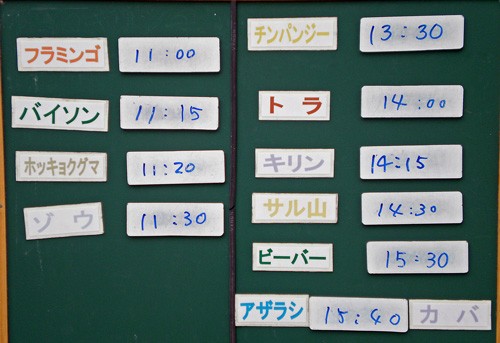 フラミンゴ 11:00
バイソン 11:15
ホッキョクグマ 11:20
ゾウ 11:30
チンパンジー 13:30
トラ 14:00
キリン 14:15
サル山 14:30
ビーバー 15:30
アザラシ 15:40 カバ